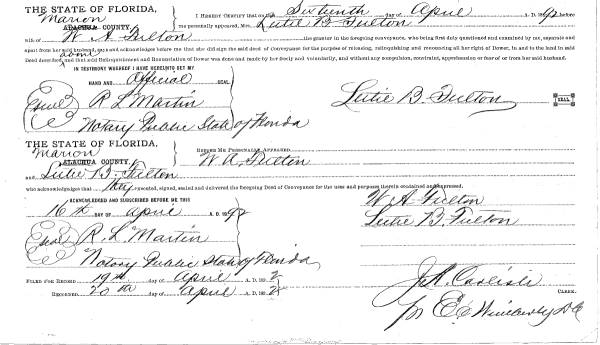 THE STATE OF FLORIDA,
Marion
ALACHUA COUNTY.
I HEREBY CERTIFY that on the Sixteenth day of April A. D. 1892 before
me personally appeared, Mrs. Lutie B. Fulton
wife of W A Fulton the grantor in the foregoing conveyance, who being first duly questioned and examined by me, separate and
apart from her said husband, did and acknowledges before me that she did sign the said deed of Conveyance for the purpose of releasing, relinquishing and renouncing all her right of Dower, in and to the land in said
above
Deed described, and that said Relinquishment and Renunciation of Dower was done and made by her freely and voluntarily, and without any compulsion, constraint, apprehension or fear of or from her said husband.
IN TESTIMONY WHEREOF I HAVE HEREUNTO SET MY
HAND AND Official SEAL
(Seal) R L Martin
Notary Public State of Florida
Lutie B. Fulton SEAL
THE STATE OF FLORIDA,
Marion
ALACHUA COUNTY.
BEFORE ME PERSONALLY APPEARED W A Fulton
and Lutie B. Fulton
who acknowledges that they executed, signed, sealed and delivered the foregoing Deed of Conveyance for the uses and purposes therein contained and expressed.
ACKNOWLEDGED AND SUBSCRIBED BEFORE ME THIS
16th DAY OF April A. D. 1892
W A Fulton
Lutie B. Fulton
(Seal) R. L. Martin
Notary Public State of Florida
FILED FOR RECORD 19th day of April A. D. 1892
RECORDED 20th day of April A. D. 1892
J. A. Carlisle CLERK.
pr E. C. D C